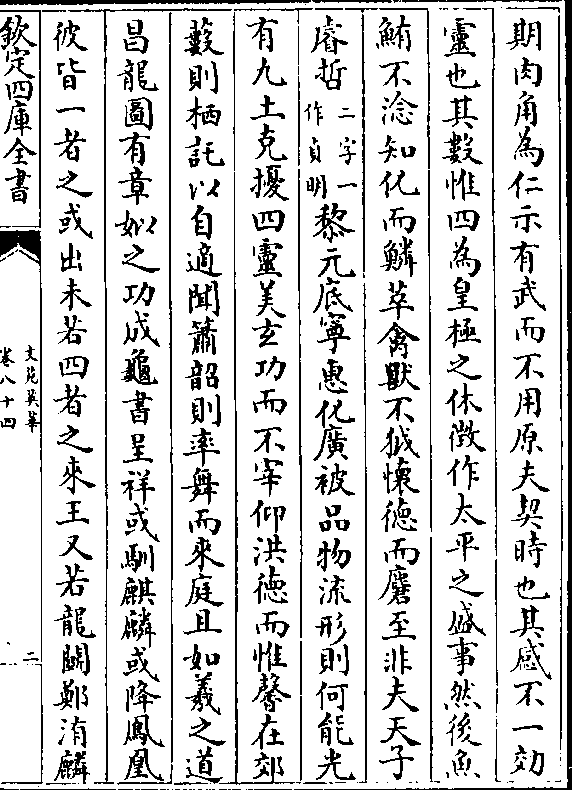 期肉角為仁示有武而不用原夫契時也其感不一効
靈也其數惟四為皇極之休徴作太平之盛事然後魚
鮪不淰知化而鱗萃禽獸不狘懷德而麕至非夫天子
睿哲二字一作貞明黎元底寧惠化廣被品物流形則何能光
有九土克擾四靈美玄功而不宰仰洪德而惟馨在郊
藪則栖託以自適聞簫韶則率舞而來庭且如羲之道
昌龍圖有章姒之功成龜書呈祥或馴麒麟或降鳳凰
彼皆一者之或出未若四者之來王又若龍鬭鄭洧麟
欽定四庫全書
文苑英華
卷八十四
二